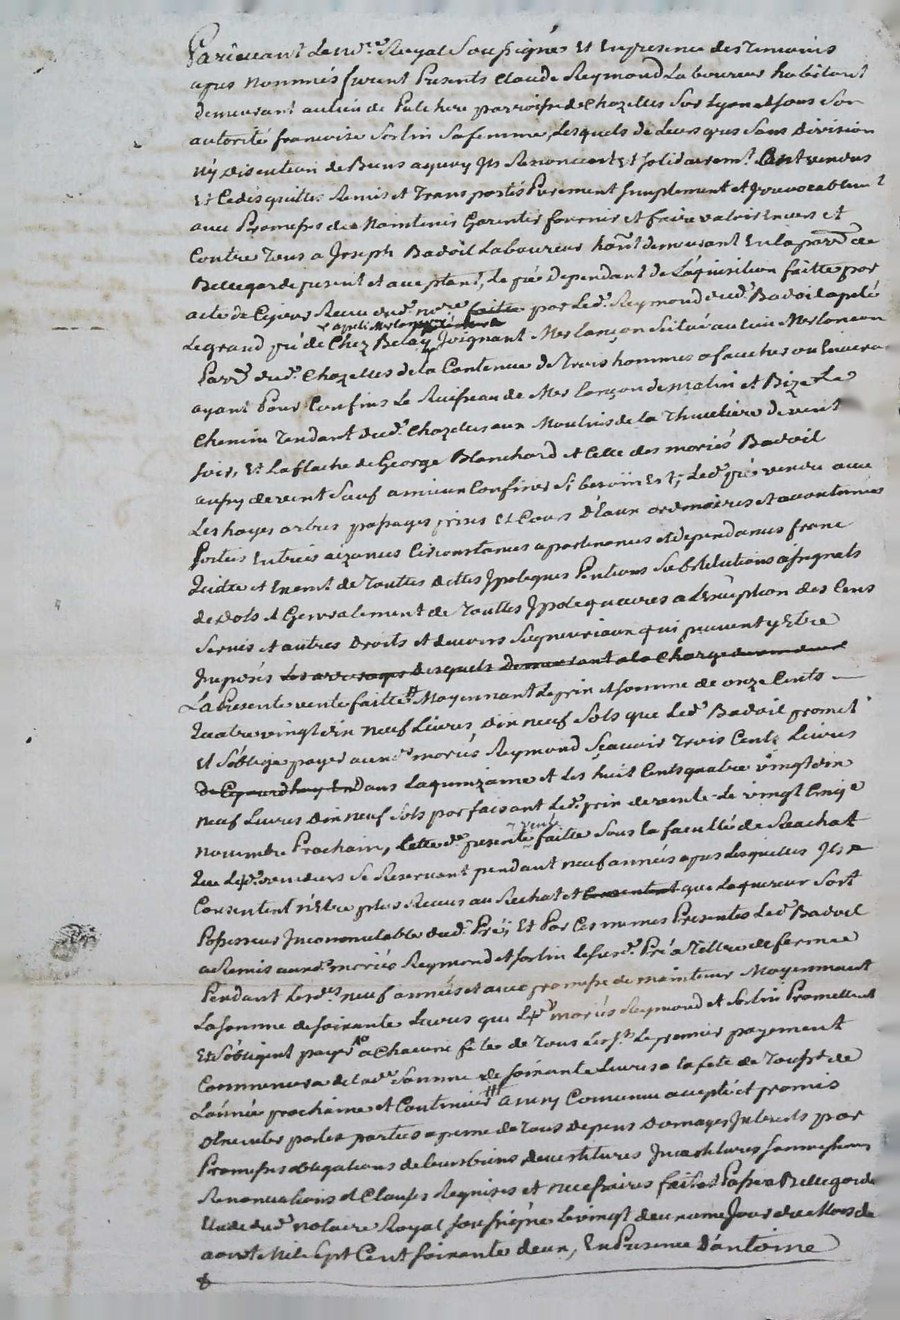 Pardevant Le no.re Royal Soussigné et En presence des Temoins
apres Nommés furent Presents Claude Reymond Laboureur habitant
demeurant au lieu de Pulchere parroisse de Chazelles Sur Lyon et sous Son
autorité francoise Sorlin Sa femme, Lesquels de Leurs gres Sans division
Ny discution de Biens a quoy Ils Renoncent Et Solidairem.t Ont vendus
Et Cedés quitte Remis et Transportés Purement Simplement et Irrevocablem.t
avec Promesses de Maintenir Garentir fournir et faire valoir Envers et
Contre Tous a Joseph Badoil Laboureur ha.nt demeurant En la parr.e de
Bellegarde present et acceptant, Le pré dependant de L'aquisition faitte par
acte de Cejour Recu dud. no.re par Led. Reymond dud. Badoil apelé
Le grand pré de Chez Belay Joignant Merlançon Situé au lieu Merlancon
Parr.e dud. Chazelles de la Contenue de Trois hommes a faucher ou Environ
ayant Pour Confins Le Ruisseau de Merlançon de matin et Bize Le
Chemin Tendant dud. Chazelles aux Moulins de la Thuiliere de vent
Soir, Et La flache de George Blanchard et Celle des mariés Badoil
aussy de vent Sauf a mieux Confiner Si besoin Est; Led. pré vendu avec
Les hayes arbres passages prises Et Cours d'Eaux ordinaires et accoutumés
Sorties Entrées aizances Circonstances apartenances et dependances franc
Quitte et Exempt de Touttes dettes Ypoteques Pentions Substitutions
de Dots et Generalement de Touttes a L'exception des Cens
Servis et autres Droits et devoirs Seigneuriaux qui peuvent y Etre
Imposés Les arrerages desquels Demeurant a la Charge
La Presente vente faitte Moyennant Le prix et Somme de onze Cents
Quatre vingt dix neuf Livres, dix neuf Sols que Led. Badoil promet
Et S'oblige payer auxd. mariés Reymond Sçavoir Trois Cents Livres
Dans La quinzaine et Les huit Cents quatre vingt dix
neuf Livres dix neuf Sols parfaisant Led. prix de vente Le vingt Cinq
novembre Prochain, Cette presente vente faitte Sous la faculté de Reachat
Que Led. vendeurs Se Reservent pendant neuf années apres lesquelles Ils
Consentent n'Etre plus Recus au Rachat et que Laquereur Soit
Possesseur Incommutable dud. Pré; Et Par Ces mêmes Presentes Led. Badoil
a Remis auxd. mariés Reymond et Sorlin Le Pré a Tittre de ferme
Pendant Lesd. neuf années et avec promesse de maintenir Moyennant
La Somme de Soixante Livres que Led. mariés Reymond et Sorlin Promettent
Et S'obligent payer a Chacune fête de Tous Les S.ts Le premier payement
Commencera de lad. Somme de Soixante Livres a la fete de Touss.t de
L'année prochaine et Continuer Comme accepté et promis
observer par les parties a peine de Tous depens Domages Interets par
Promesses obligations de Leurs biens
Renonciations et Clauses Requises et necessaires fait et Passé a Bellegarde
Etude dud. notaire Royal soussigné Le vingt deuxieme Jour du Mois de
aoust Mil Sept Cent Soixante deux, En Presence d'antoine